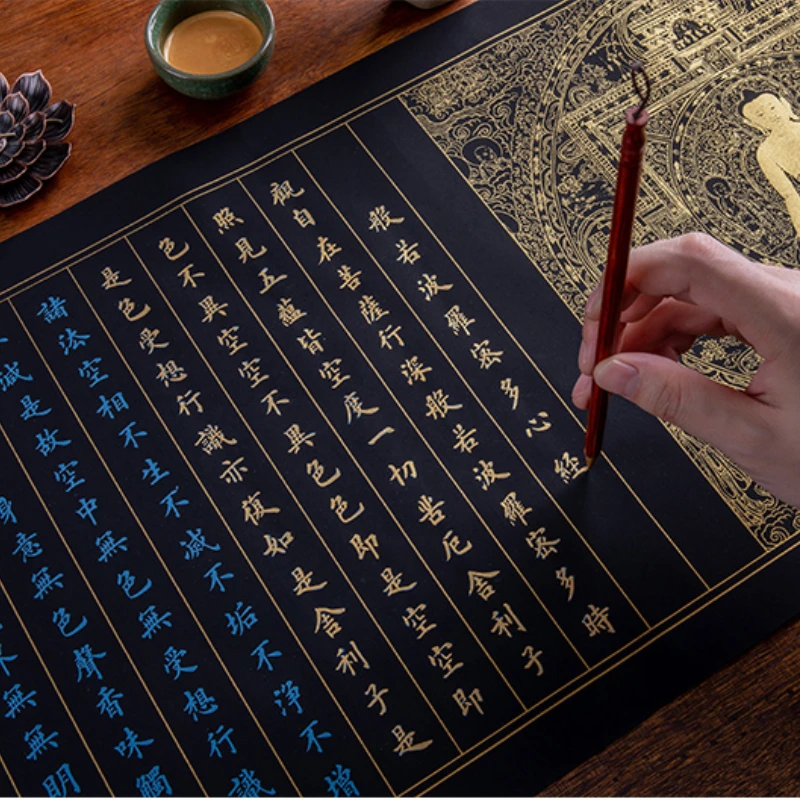 般若波羅密多心經
觀自在菩薩行深般若波羅密多時
照見五蘊皆空度一切苦厄舍利子
色不異空空不異色色即是空空即
是色受想行識亦復如是舍利子是
諸法空相不生不滅不垢不淨不增
減是故空中無色無受想行識
身意無色聲香味觸
無無明